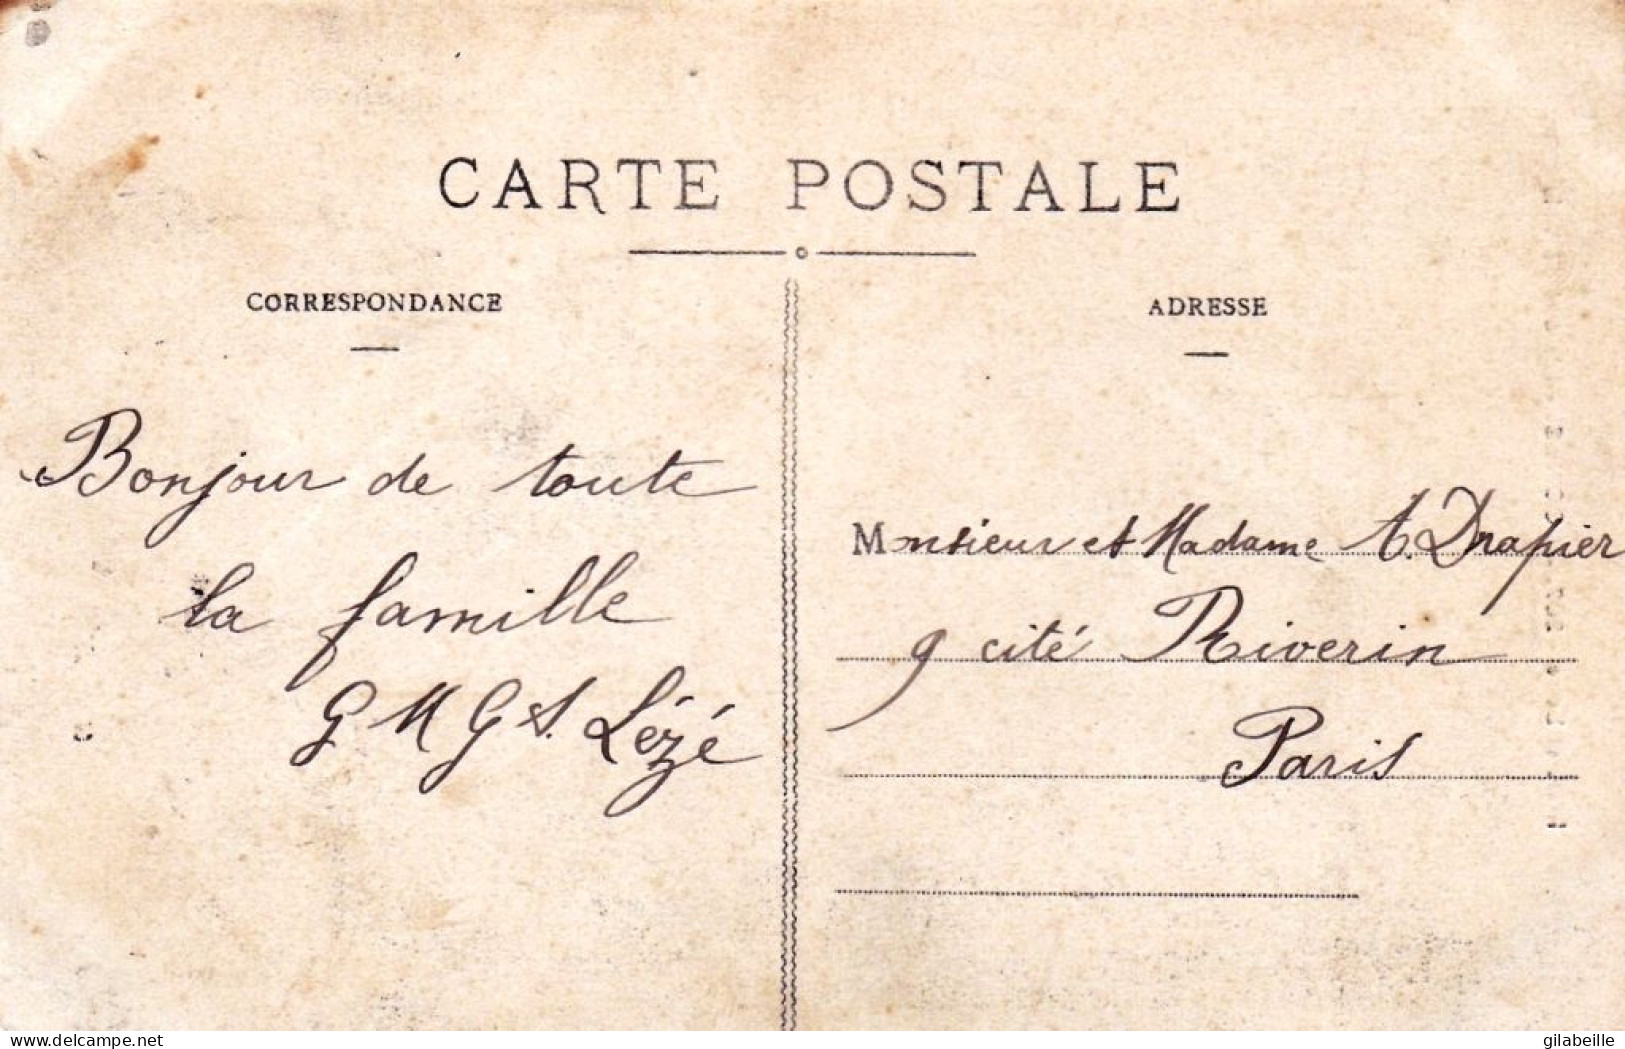 CARTE POSTALE
CORRESPONDANCE
Bonjour de toute
la famille
G M G S. Lézé
ADRESSE
Monsieur et Madame A. Drapier
9 cité Riverin
Paris
www.delcampe.net
gilabeille